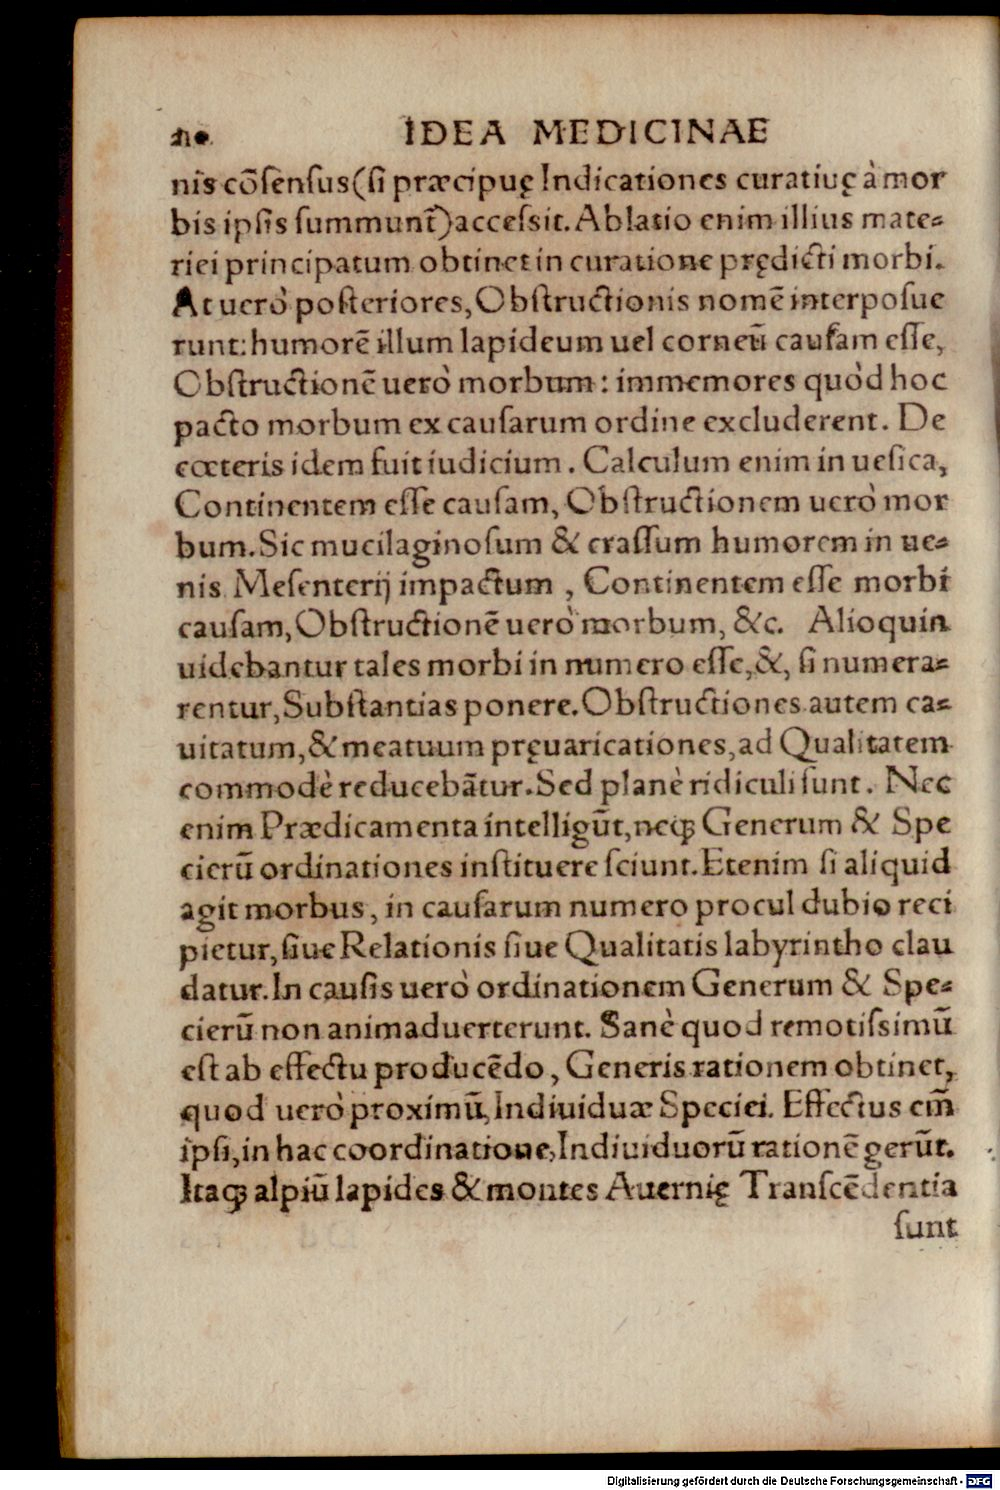 IDEA MEDICINAE
nis cōsensus(si præcipuę Indicationes curatiuę à mor
bis ipsis summunt̃)accessit. Ablatio enim illius mate-
riei principatum obtinet in curatione prędicti morbi.
At uerò posteriores, Obstructionis nomē interposue
runt: humorē illum lapideum uel corneū causam esse,
Obstructionē uerò morbum: immemores quòd hoc
pacto morbum ex causarum ordine excluderent. De
cœteris idem fuit iudicium. Calculum enim in uesica,
Continentem esse causam, Obstructionem uerò mor
bum. Sic mucilaginosum & crassum humorem in ue-
nis Mesenterij impactum , Continentem esse morbi
causam, Obstructionē uerò morbum, &c. Alioquin
uidebantur tales morbi in numero esse, &, si numera-
rentur, Substantias ponere. Obstructiones autem ca-
uitatum, & meatuum pręuaricationes, ad Qualitatem
commodè reducebātur. Sed planè ridiculi sunt. Nec
enim Prædicamenta intelligūt, neq; Generum & Spe
cierū ordinationes instituere sciunt. Etenim si aliquid
agit morbus, in causarum numero procul dubio reci
pietur, siue Relationis siue Qualitatis labyrintho clau
datur. In causis uerò ordinationem Generum & Spe-
cierū non animaduerterunt. Sanè quod remotissimū
est ab effectu producēdo, Generis rationem obtinet,
quod uerò proximū, Indiuiduæ Speciei. Effectus em̄
ipsi, in hac coordinatione, Indiuiduorū rationē gerūt.
Itaq; alpiū lapides & montes Auernię Transcēdentia
sunt
Digitalisierung gefördert durch die Deutsche Forschungsgemeinschaft - DFG